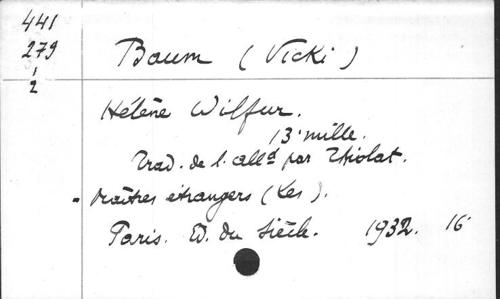 441
279
1
2
Baum (Vicki)
Hélène Wilfur.
13e mille.
Trad. de l. alld par Thiolat.
- Maîtres étrangers (Les).
Paris. Ed. du Siècle. 1932. 16°